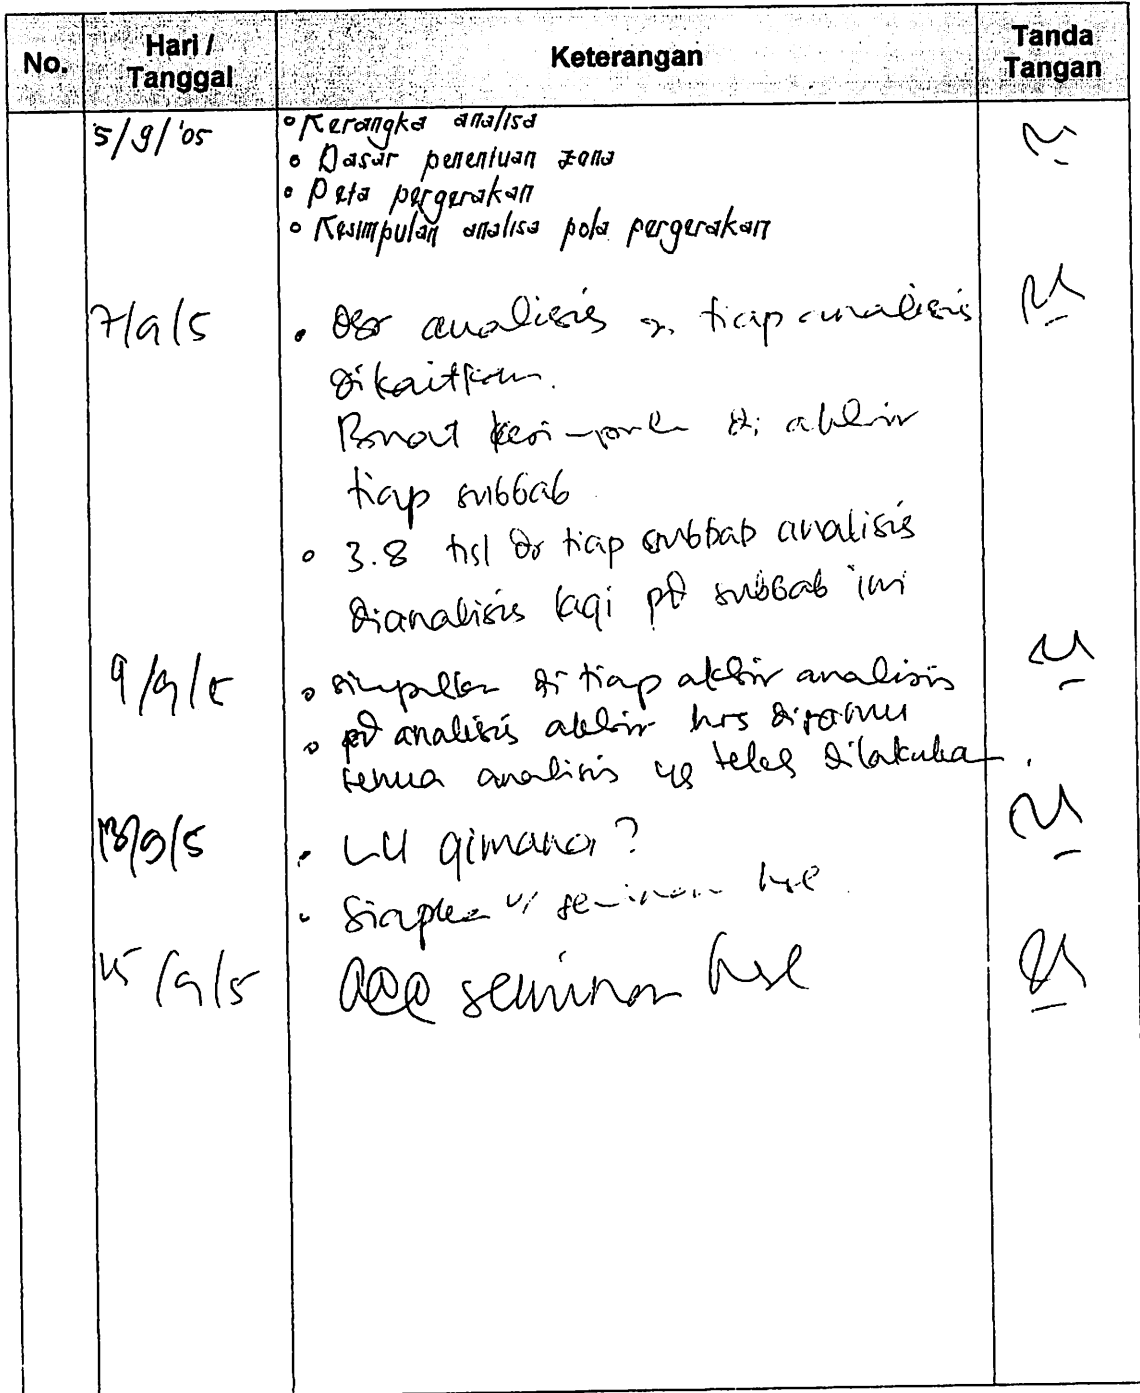 No. Hari / Tanggal Keterangan Tanda Tangan
5/9/'05 • Kerangka analisa
• Dasar penentuan zona
• Peta pergerakan
• Kesimpulan analisa pola pergerakan
7/9/5 • analisis tiap analisis
dikaitkan.
Buat di akhir
tiap subbab
• 3.8 hsl dr tiap subbab analisis
dianalisis lagi pd subbab ini
9/9/5 • simpulkan di tiap akhir analisis
• pd analisis akhir hrs diramu
semua analisis yg telah dilakukan.
13/9/5 • LU gimana?
• Siapkan u/ seminar hsl
15/9/5 acc seminar hsl